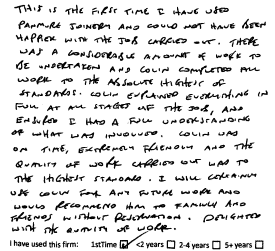 THIS IS THE FIRST TIME I HAVE USED
PANMURE JOINERY AND COULD NOT HAVE BEEN
HAPPIER WITH THE JOB CARRIED OUT. THERE
WAS A CONSIDERABLE AMOUNT OF WORK TO
BE UNDERTAKEN AND COLIN COMPLETED ALL
WORK TO THE ABSOLUTE HIGHEST OF
STANDARDS. COLIN EXPLAINED EVERYTHING IN
FULL AT ALL STAGES OF THE JOB, AND
ENSURED I HAD A FULL UNDERSTANDING
OF WHAT WAS INVOLVED. COLIN WAS
ON TIME, EXTREMELY FRIENDLY AND THE
QUALITY OF WORK CARRIED OUT WAS TO
THE HIGHEST STANDARD. I WILL CERTAINLY
USE COLIN FOR ANY FUTURE WORK AND
WOULD RECOMMEND HIM TO FAMILY AND
FRIENDS WITHOUT RESERVATION. DELIGHTED
WITH THE QUALITY OF WORK.
I have used this firm: 1stTime <2 years 2-4 years 5+ years